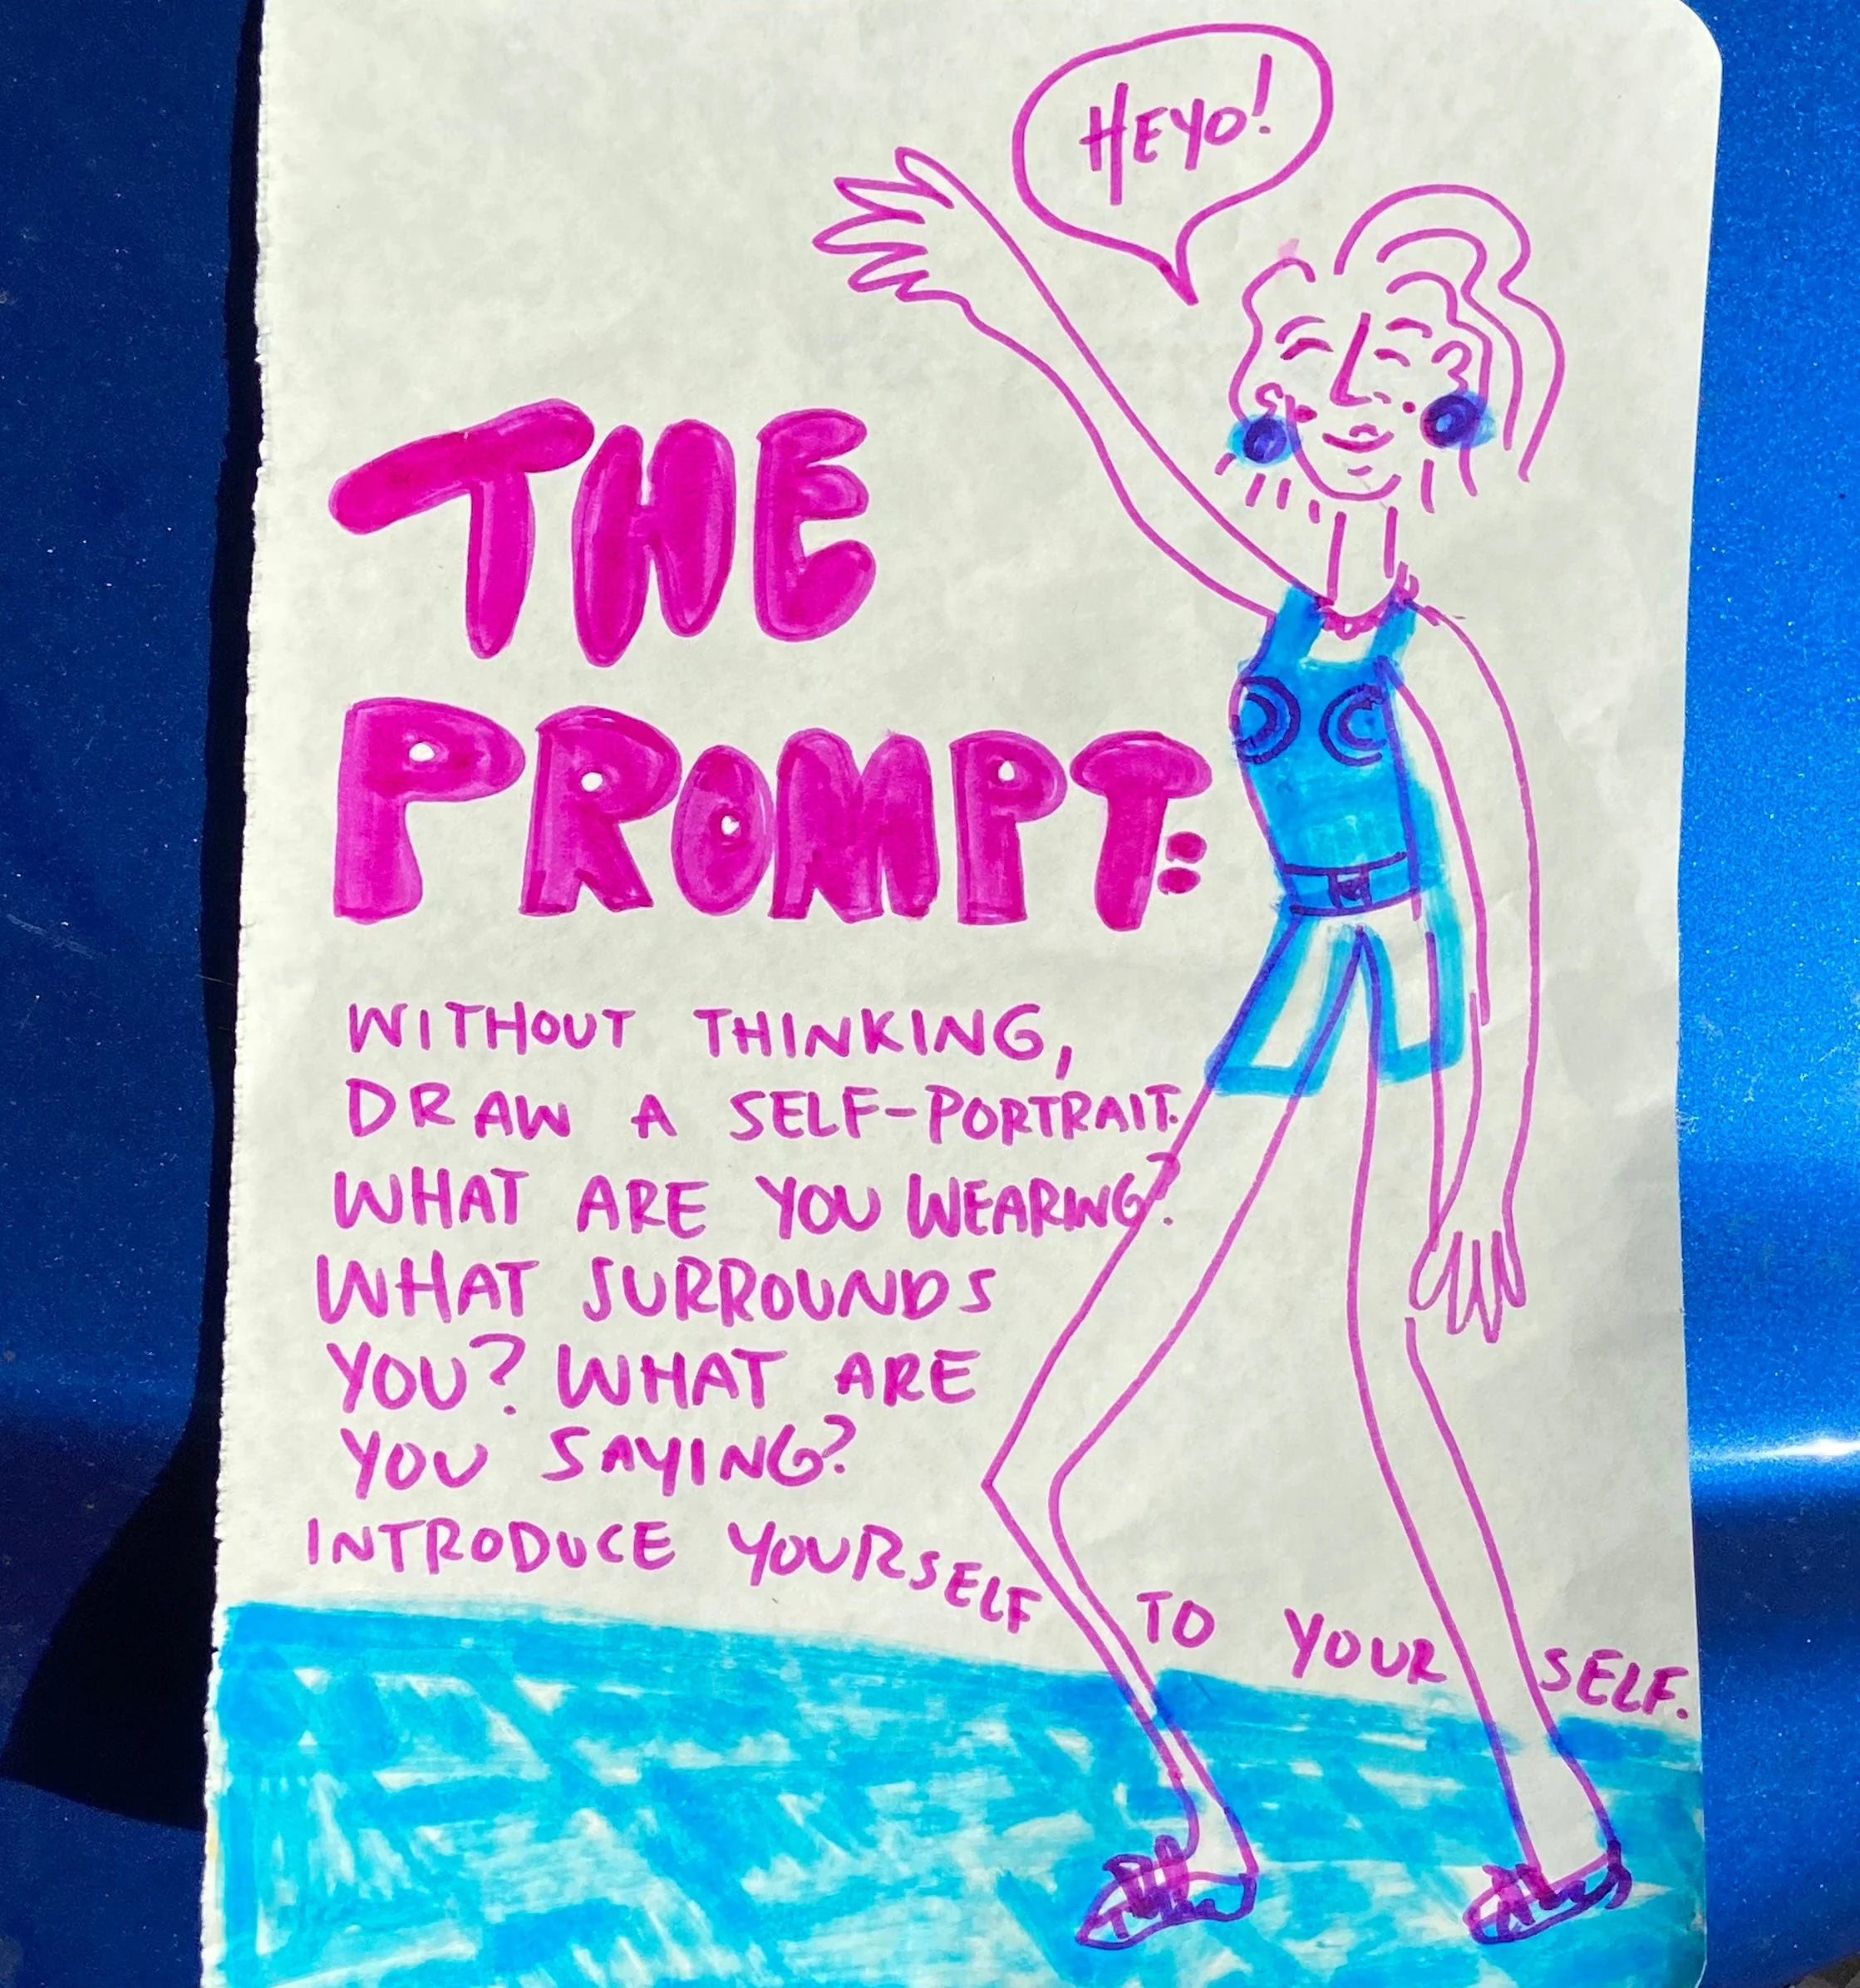 HEYO!
THE
PROMPT:
WITHOUT THINKING,
DRAW A SELF-PORTRAIT.
WHAT ARE YOU WEARING?
WHAT SURROUNDS
YOU? WHAT ARE
YOU SAYING?
INTRODUCE YOURSELF TO YOUR SELF.